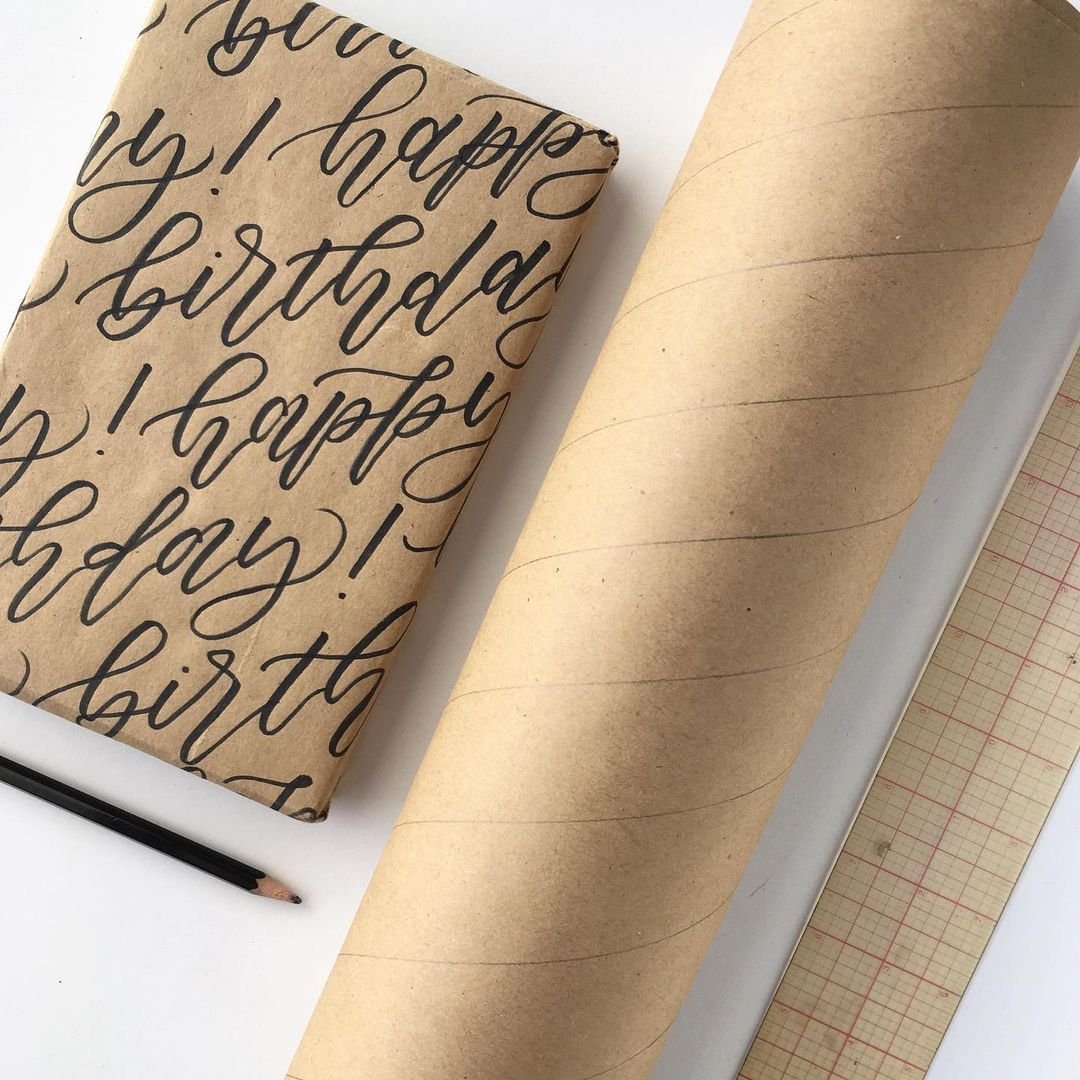 birth
ay! happy
birthday
y! happy
thday!
birth